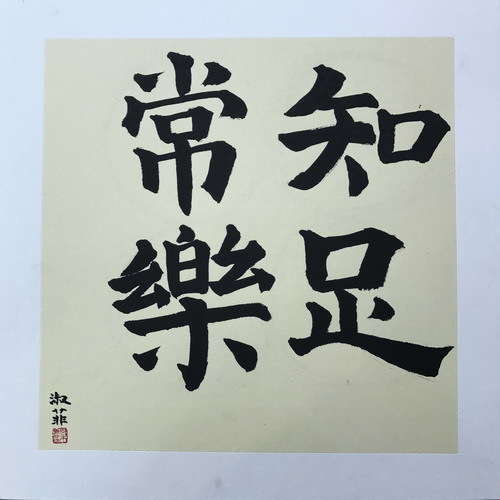 知足
常樂
淑菲